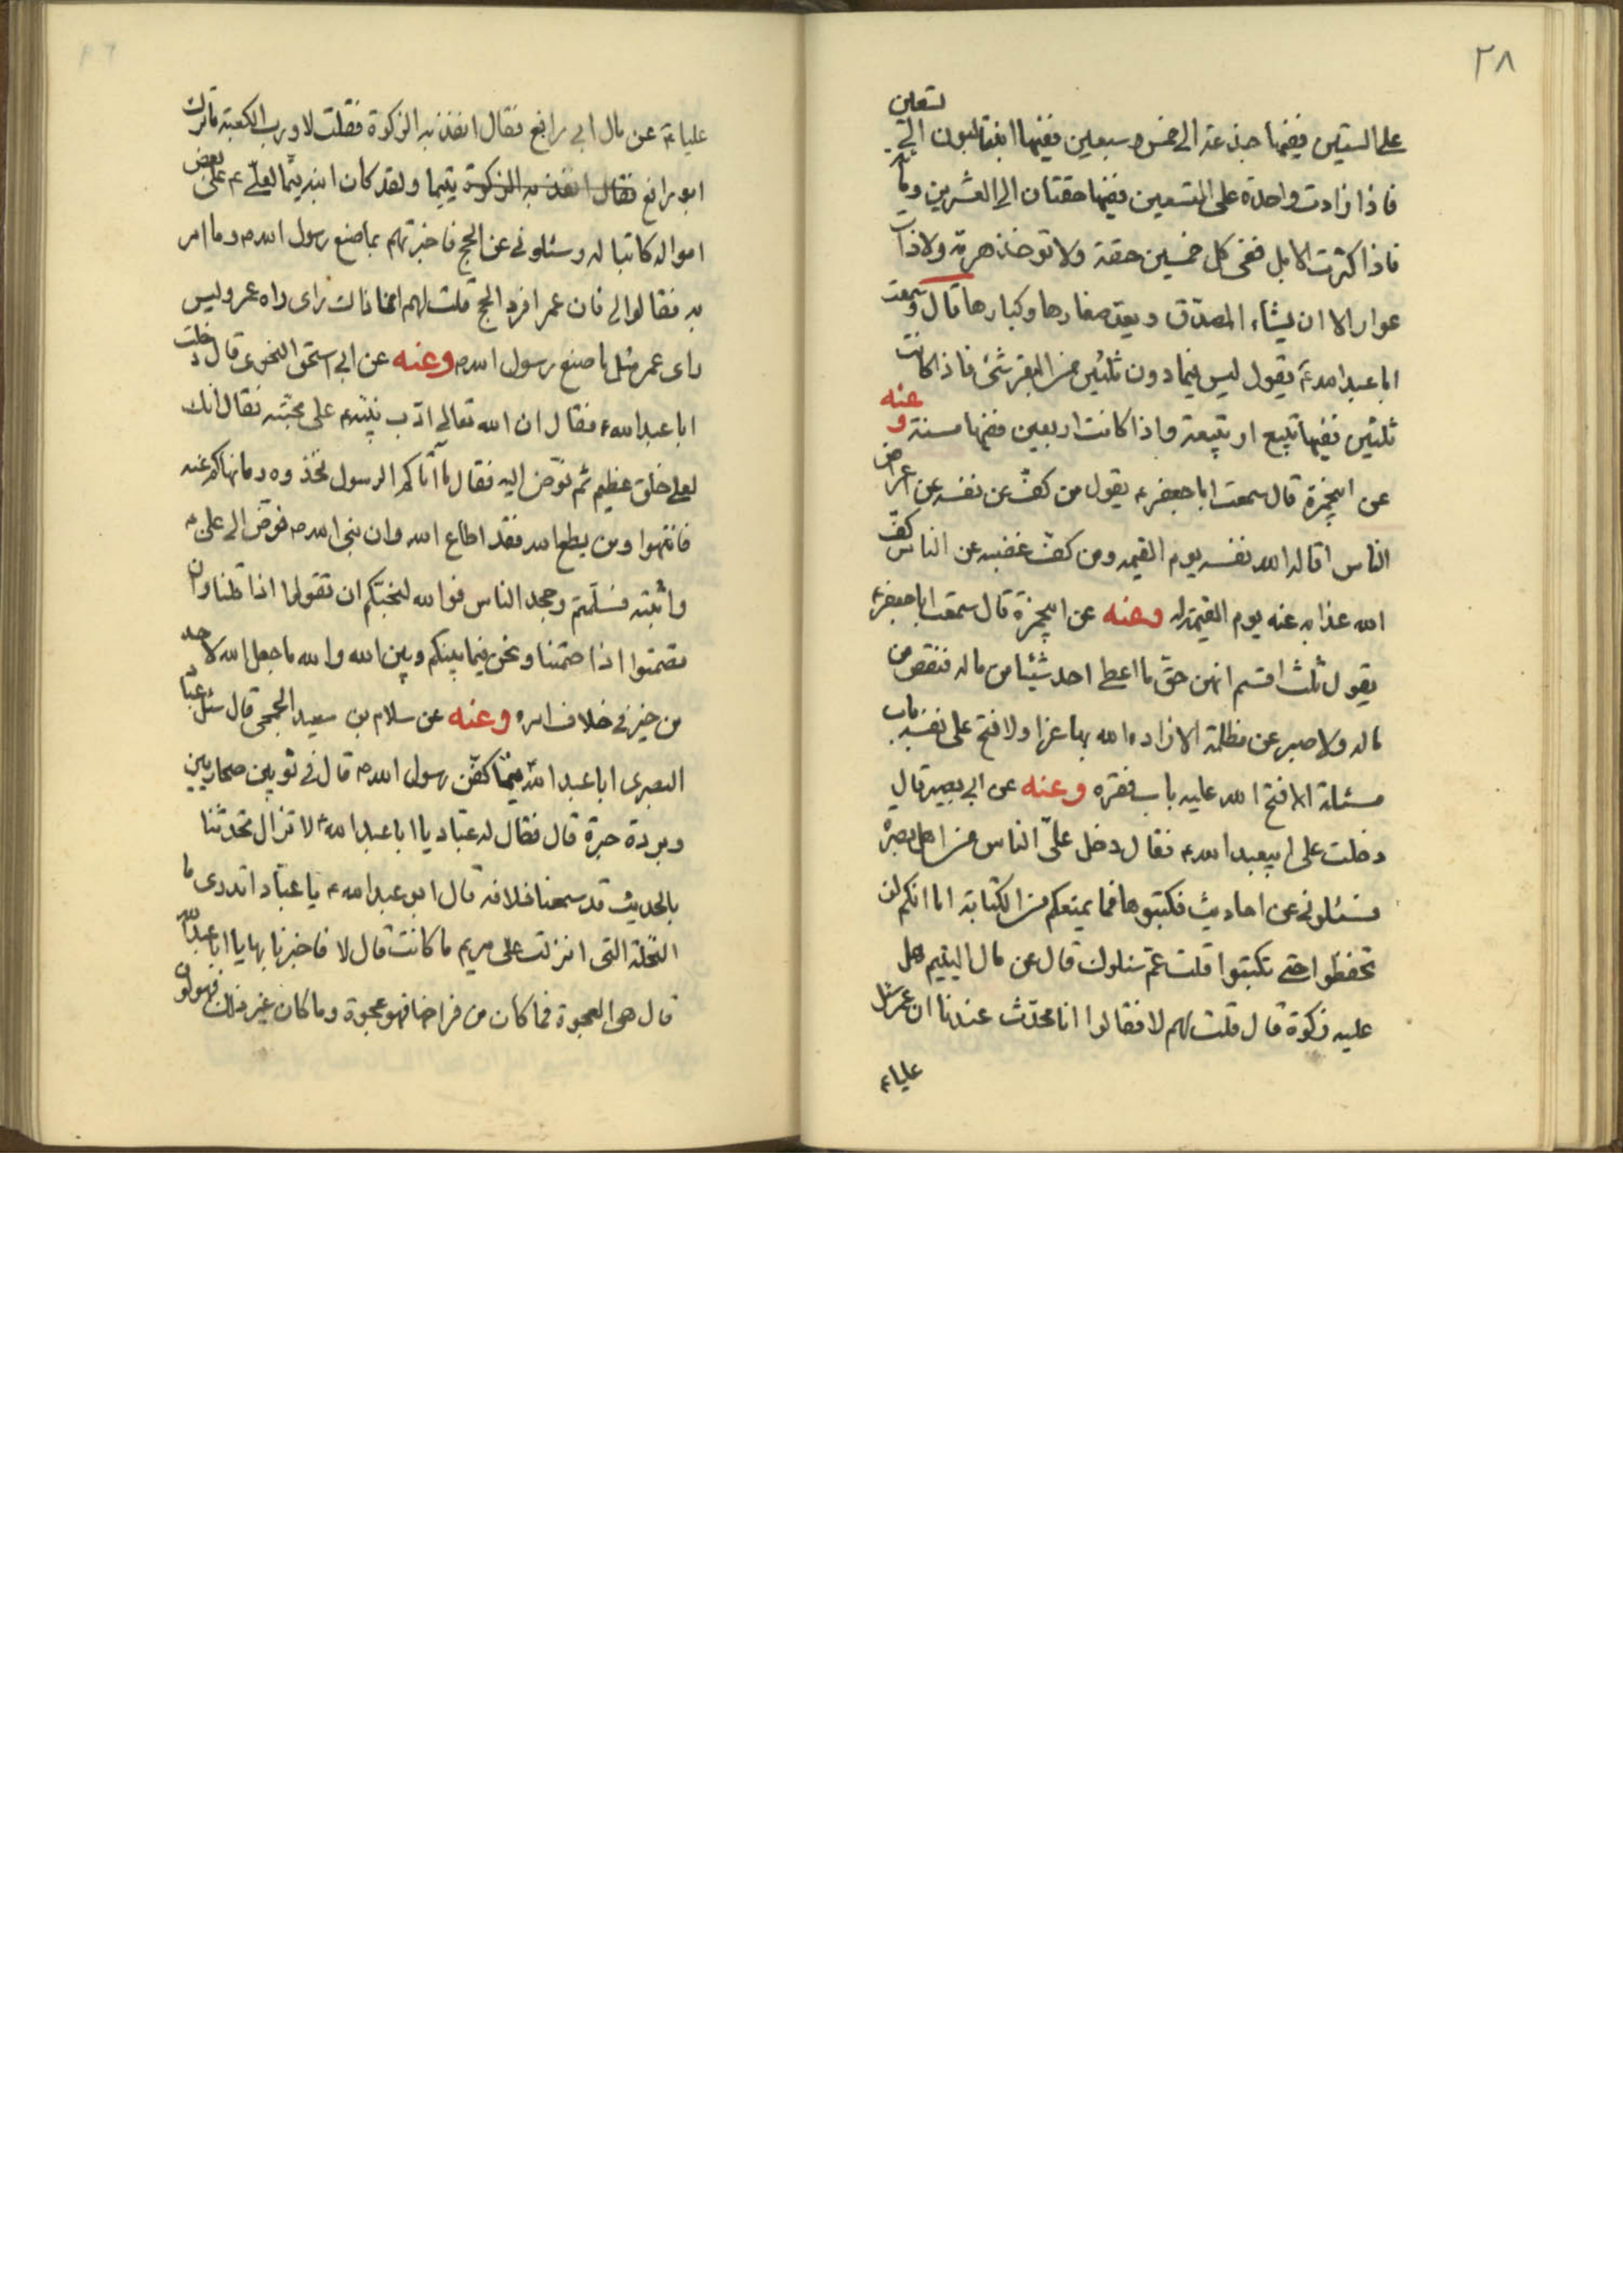 ٢٨
على الستين ففيها جذعة الى خمس وسبعين ففيها ابنتا لبون الى تسعين
فاذا زادت واحدة على التسعين ففيها حقتان الى العشرين ومائة
فاذا كثرت الابل ففى كل خمسين حقة ولا توخذ هرمة ولا ذات
عوار الا ان يشاء المصدق ويعد صغارها وكبارها قال وسمعت
ابا عبد الله ع يقول ليس فيما دون ثلثين من البقر شئ فاذا كانت
ثلثين ففيها تبيع او تبيعة واذا كانت اربعين ففيها مسنة وعنه
عن ابيحمزة قال سمعت ابا جعفر ع يقول من كف عن نفسه عن اعراض
الناس اقاله الله نفسه يوم القيمه ومن كف غضبه عن الناس كف
الله عذابه عنه يوم القيمة وعنه عن ابيحمزة قال سمعت ابا جعفر ع
يقول ثلث اقسم انهن حق ما اعطى احد شيئا من ماله فنقص من
ماله ولا صبر عن مظلمة الا زاده الله بها عزا ولا فتح على نفسه باب
مسئلة الا فتح الله عليه باب فقره وعنه عن ابى بصير قال
دخلت على ابيعبد الله ع فقال دخل علىّ الناس من اهل بصرة
فسئلونى عن احاديث فكتبوها فما يمنعكم من الكتابة اما انكم لن
تحفظوا حتى تكتبوا قلت عم سئلوك قال عن مال اليتيم هل
عليه زكوة قال قلت لهم لا فقالوا انا محدث عندنا ان عمر سئل
عليا ع
عليا ع عن مال ابى رافع فقال انفذ به الزكوة فقلت لا ورب الكعبة ما ترك
ابو رافع فقال انفذ به الزكوة يتيما ولقد كان ابنه يتما لعلى ع على بعض
امواله كاتبا له وسئلونى عن الحج فاخبرتهم بما صنع رسول الله ص وما امر
به فقالوا لى فان عمر افرد الحج قلت لهم انما ذاك راى راه عمر وليس
راى عمر مثل ما صنع رسول الله ص وعنه عن ابى اسحق النحوى قال دخلت
ابا عبد الله ع فقال ان الله تعالى ادب نبيه ع على محبته فقال انك
لعلى خلق عظيم ثم فوّض اليه فقال ما آتاكم الرسول فخذوه وما نهاكم عنه
فانتهوا ومن يطع الله فقد اطاع الله وان نبى الله ص فوّض الى على ع
واثبته فسلّمتم وجحد الناس فوالله لنحبكم ان تقولوا اذا قلنا وان
تصمتوا اذا صمتنا ونحن فيما بينكم وبين الله والله ما جعل الله لاحد
من خير فى خلاف امره وعنه عن سلام بن سعيد الجمحى قال سئل عبّاد
البصرى ابا عبد الله فيما كفّن رسول الله ص قال فى ثوبين صحاريين
وبردة حبرة قال فقال له عبّاد يا ابا عبد الله ع لا تزال تحدثنا
بالحديث قد سمعنا خلافه قال ابو عبد الله ع يا عبّاد اتدرى ما
النخلة التى انزلت على مريم ما كانت قال لا فاخبرنا بها يا ابا عبد الله
قال هى العجوة فما كان من فراخها فهو عجوة وما كان غير ذلك فهو لون